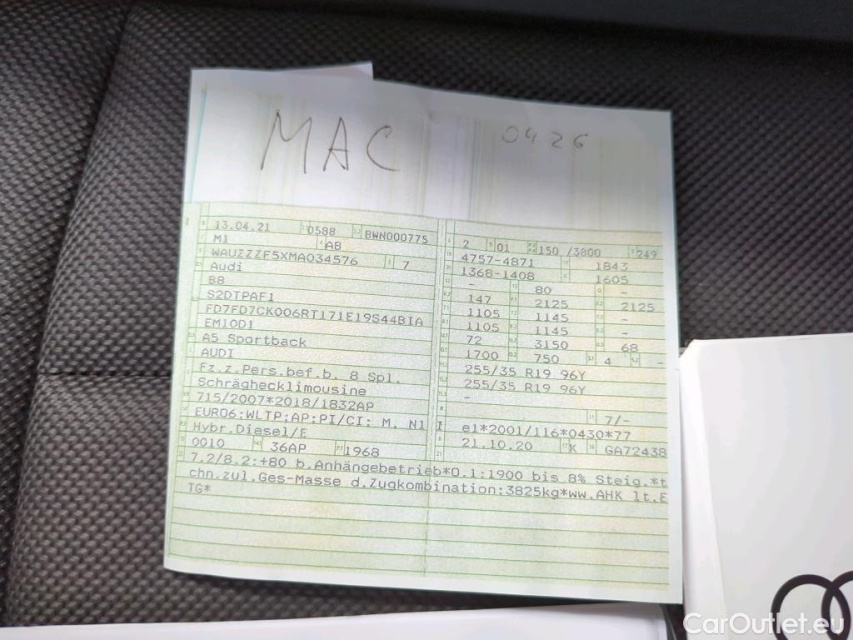 MAC 0426
13.04.21 0588 BWN000775 2 01 150 /3800 249
M1 AB 4757-4871 1843
WAUZZZF5XMA034576 7 1368-1408 1605
Audi - 80 -
B8 147 2125 2125
S2DTPAF1 1105 1145 -
FD7FD7CK006RT171E19S44BIA 1105 1145 -
EM10D1 72 3150 68
A5 Sportback 1700 750 4 -
AUDI 255/35 R19 96Y
Fz.z.Pers.bef.b. 8 Spl. 255/35 R19 96Y
Schräghecklimousine -
715/2007*2018/1832AP 7/-
EURO6;WLTP;AP;PI/CI; M, N1 I e1*2001/116*0430*77
Hybr.Diesel/E 21.10.20 K GA72438
0010 36AP 1968
7.2/8.2:+80 b.Anhängebetrieb*O.1:1900 bis 8% Steig.*t
chn.zul.Ges-Masse d.Zugkombination:3825kg*ww.AHK lt.E
TG*
CarOutlet.eu